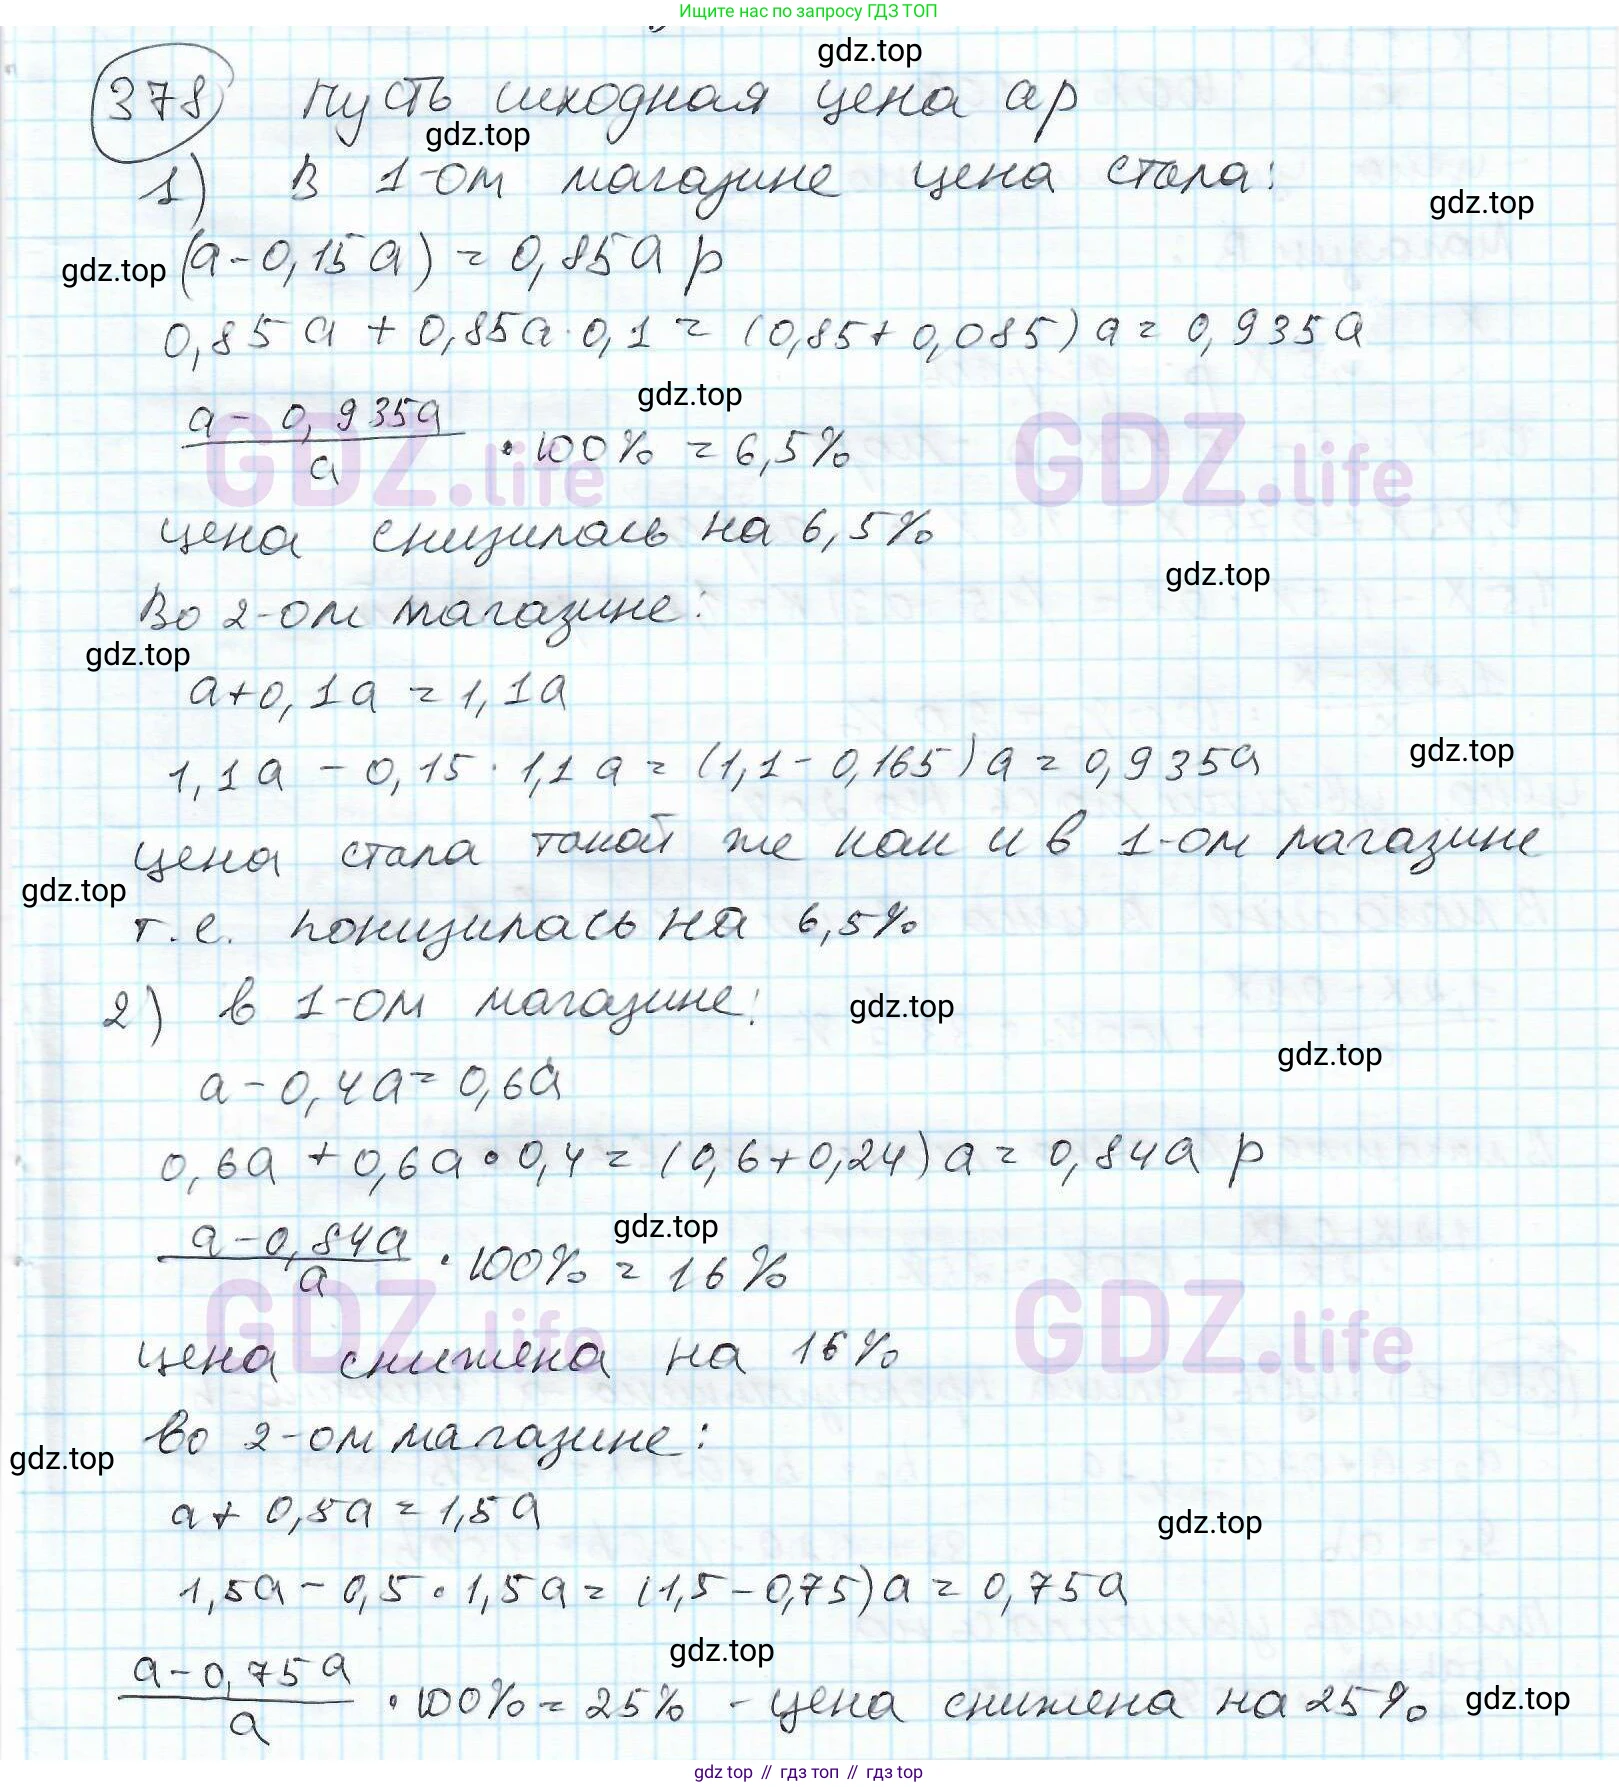 Ищите нас по запросу ГДЗ ТОП
gdz.top
378) Пусть исходная цена а р
gdz.top
1) В 1-ом магазине цена стала:
gdz.top
gdz.top (а-0,15а) = 0,85а р
0,85а + 0,85а·0,1 = (0,85+0,085)а = 0,935а
gdz.top
а - 0,935а / а · 100% = 6,5%
GDZ.life GDZ.life
цена снизилась на 6,5%
gdz.top
Во 2-ом магазине:
gdz.top
а+0,1а = 1,1а
gdz.top
1,1а - 0,15·1,1а = (1,1-0,165)а = 0,935а
цена стала такой же как и в 1-ом магазине
gdz.top
т.е. понизилась на 6,5%
2) в 1-ом магазине:
gdz.top
gdz.top
а-0,4а = 0,6а
0,6а + 0,6а·0,4 = (0,6+0,24)а = 0,84а р
gdz.top
а-0,84а / а · 100% = 16%
GDZ.life GDZ.life
цена снижена на 16%
Во 2-ом магазине:
gdz.top
а+ 0,5а = 1,5а
gdz.top
1,5а - 0,5·1,5а = (1,5-0,75)а = 0,75а
gdz.top
а-0,75а / а · 100% = 25% - цена снижена на 25% gdz.top
gdz top // гдз топ // gdz top